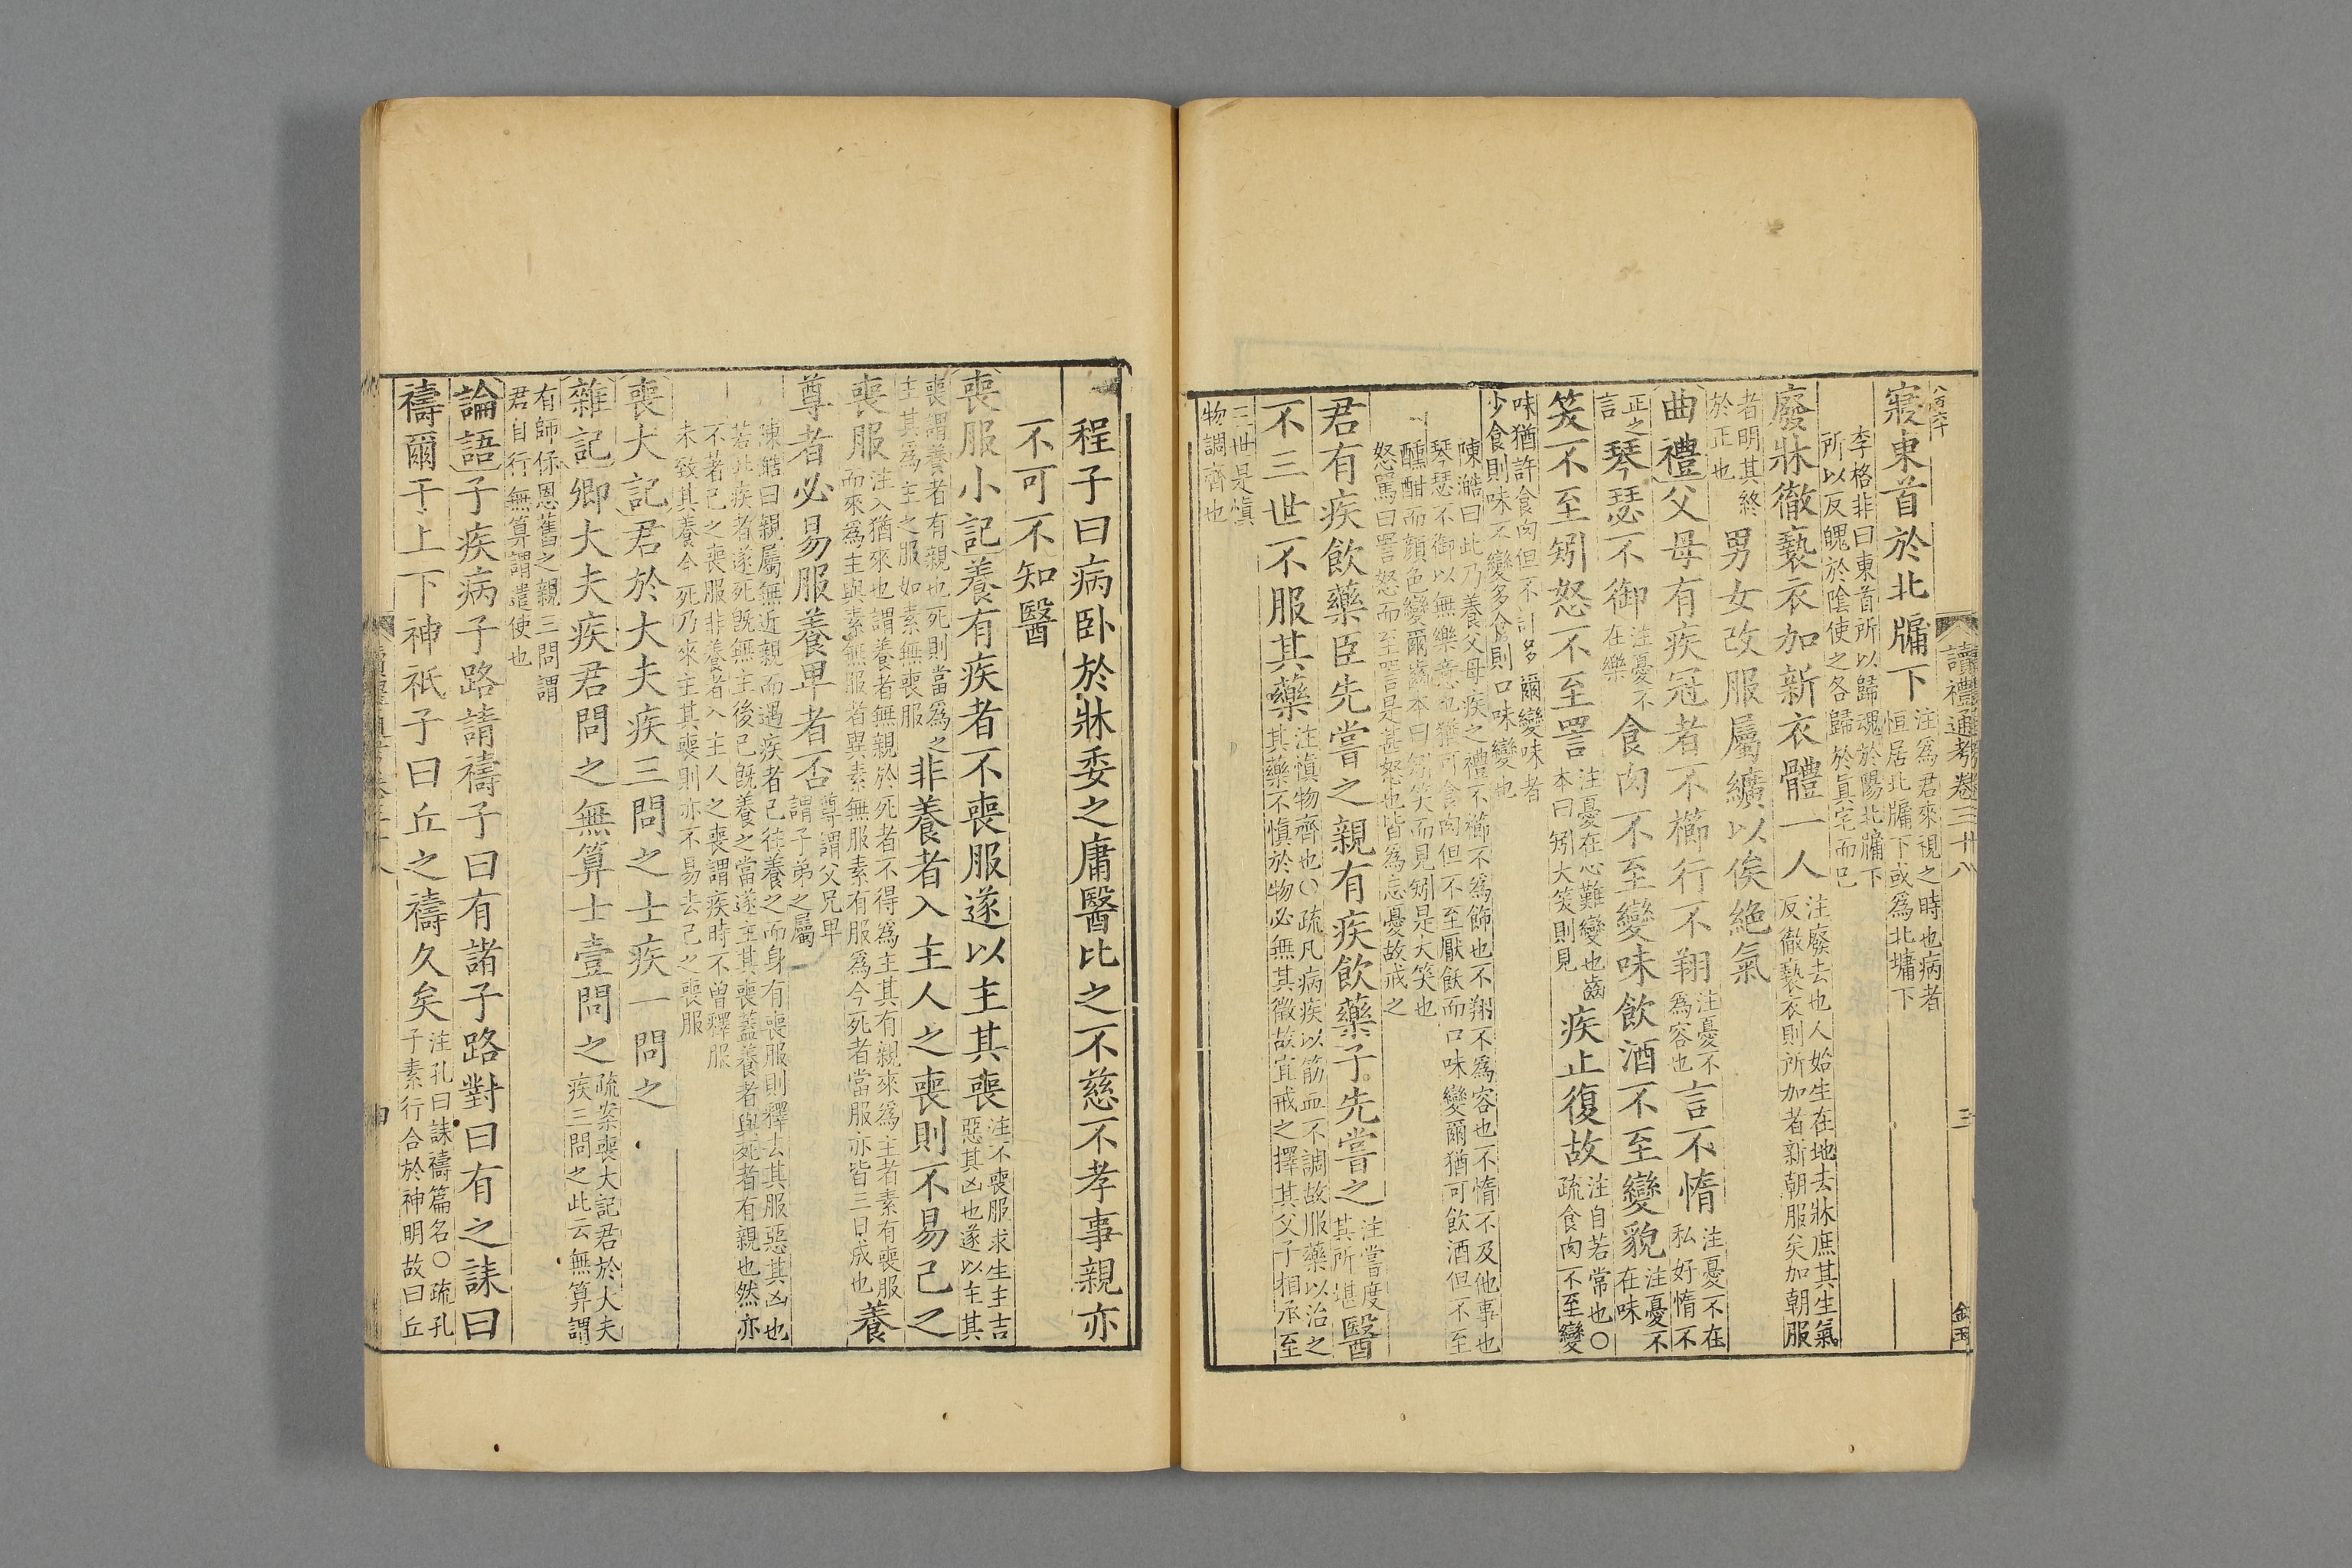 讀禮通考卷三十八
三
金玉
寢東首於北牖下注爲君來視之時也病者恒居北牖下或爲北墉下
李格非曰東首所以歸魂於陽北牖下所以反魄於陰使之各歸於眞宅而已
廢牀徹褻衣加新衣體一人注廢去也人始生在地去牀庶其生氣反徹褻衣則所加者新朝服矣加朝服
者明其終於正也男女改服屬纊以俟絶氣
曲禮父母有疾冠者不櫛行不翔注憂不爲容也言不惰注憂不在私好惰不
正之言琴瑟不御注憂不在樂食肉不至變味飲酒不至變貌注憂不在味
笑不至矧怒不至詈注憂在心難變也齒本曰矧大笑則見疾止復故注自若常也○疏食肉不至變
味猶許食肉但不許多爾變味者少食則味不變多食則口味變也
陳澔曰此乃養父母疾之禮不櫛不爲飾也不翔不爲容也不惰不及他事也琴瑟不御以無樂意也猶可食肉但不至厭飫而口味變爾猶可飲酒但不至
醺酣而顔色變爾齒本曰矧笑而見矧是大笑也怒罵曰詈怒而至詈是甚怒也皆爲忘憂故戒之
君有疾飲藥臣先嘗之親有疾飲藥子先嘗之注嘗度其所堪醫
不三世不服其藥注愼物齊也○疏凡病疾以筋血不調故服藥以治之其藥不愼於物必無其徵故宜戒之擇其父子相承至
三世是愼物調齊也
程子曰病卧於牀委之庸醫比之不慈不孝事親亦
不可不知醫
喪服小記養有疾者不喪服遂以主其喪注不喪服求生主吉惡其凶也遂以主其
喪謂養者有親也死則當爲之主其爲主之服如素無喪服非養者入主人之喪則不易己之
喪服注入猶來也謂養者無親於死者不得爲主其有親來爲主者素有喪服而來爲主與素無服者異素無服素有服爲今死者當服亦皆三日成也養
尊者必易服養卑者否尊謂父兄卑謂子弟之屬
陳皓曰親屬無近親而遇疾者己往養之而身有喪服則釋去其服惡其凶也若此疾者遂死旣無主後己旣養之當遂主其喪蓋養者與死者有親也然亦
不著己之喪服非養者入主人之喪謂疾時不曾釋服未致其養今死乃來主其喪則亦不易去己之喪服
喪大記君於大夫疾三問之士疾一問之
雜記卿大夫疾君問之無算士壹問之疏案喪大記君於大夫疾三問之此云無算謂
有師保恩舊之親三問謂君自行無算謂遣使也
論語子疾病子路請禱子曰有諸子路對曰有之誄曰
禱爾于上下神祇子曰丘之禱久矣注孔曰誄禱篇名○疏孔子素行合於神明故曰丘